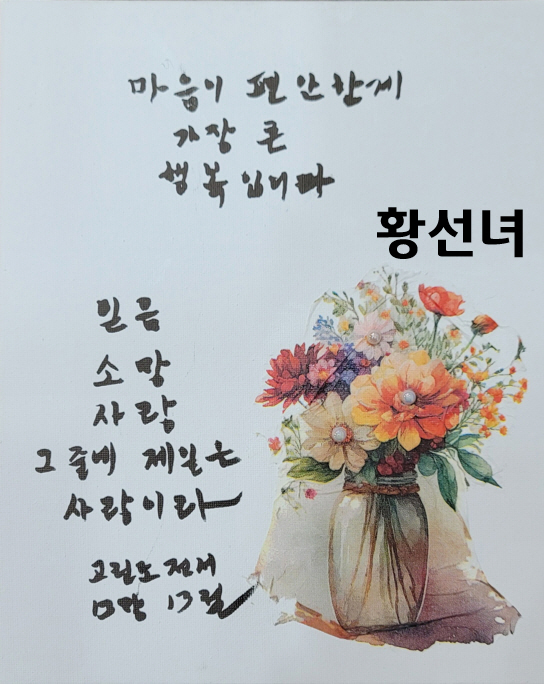 마음이 편안한게
가장 큰
행복입니다
황선녀
믿음
소망
사랑
그중에 제일은
사랑이라
고린도전서
13장 13절